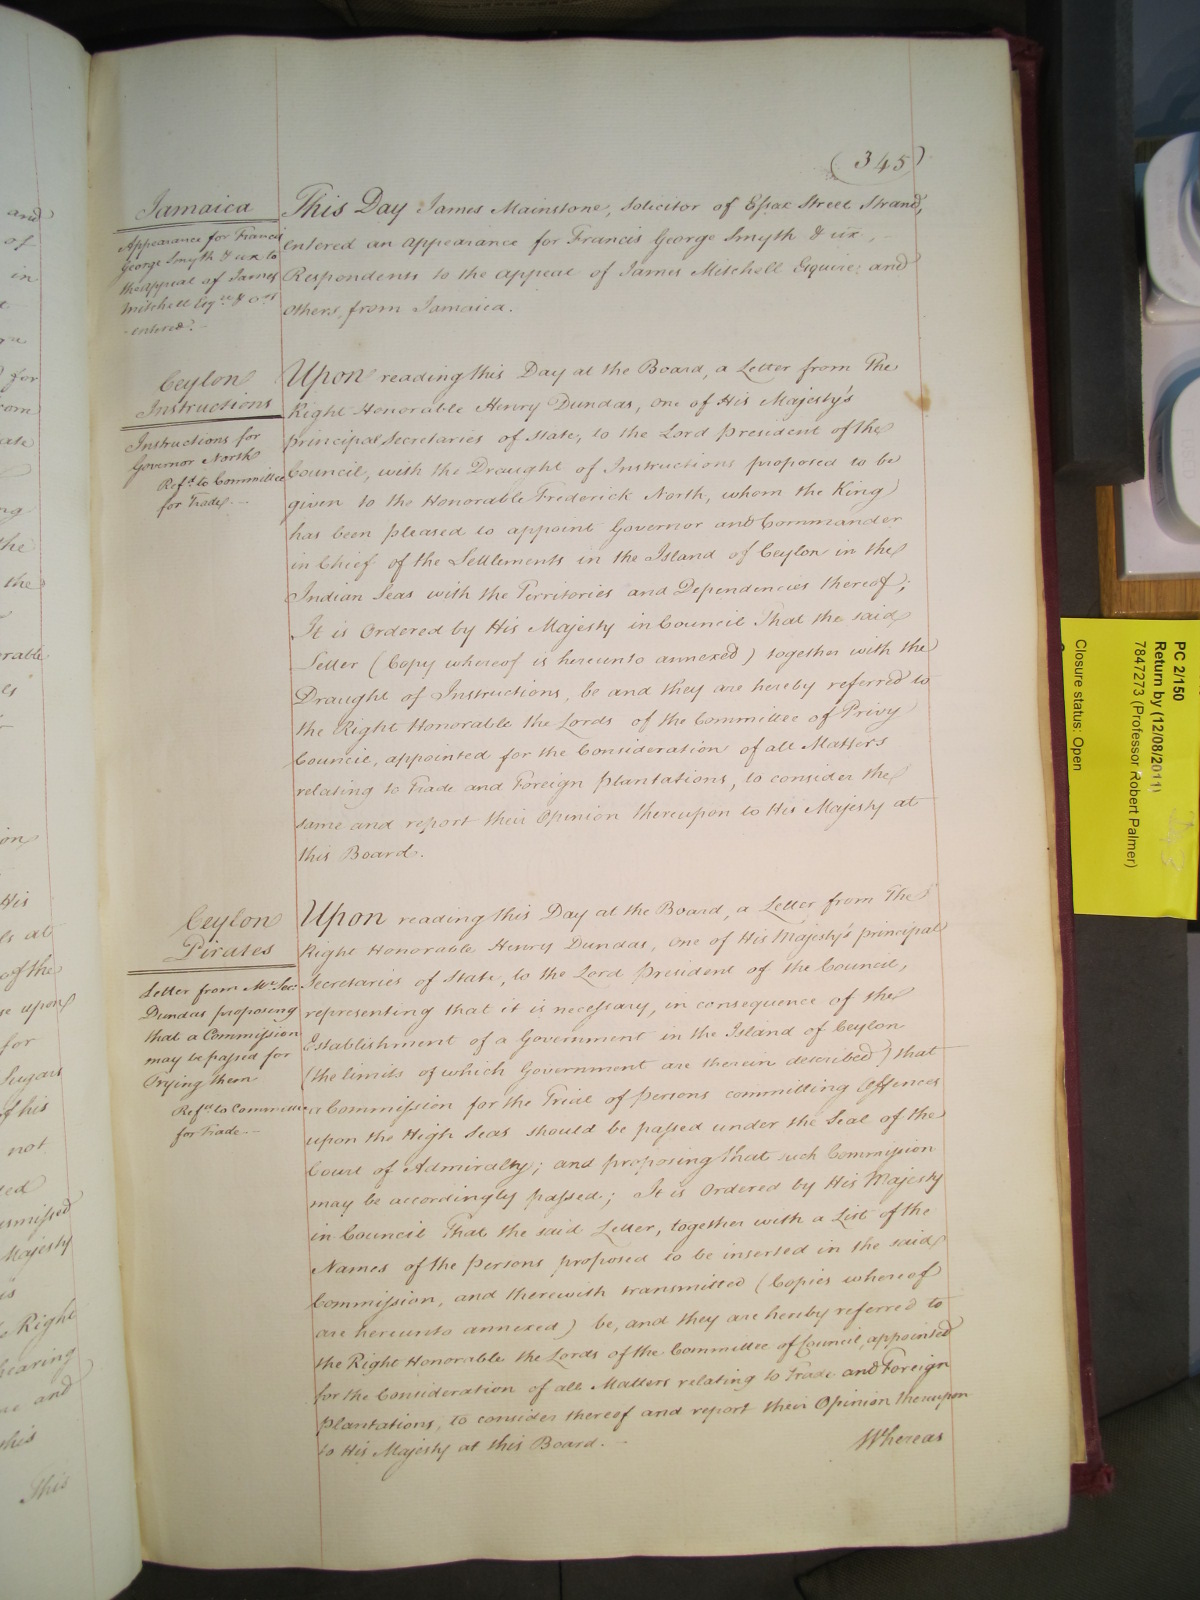 (345)
Jamaica
Appearance for Francis
George Smyth & ux to
the appeal of James
Mitchell Esqre & ors
entered.
This Day James Mainstone, Solicitor of Essex Street Strand,
entered an appearance for Francis George Smyth & ux.,
Respondents to the appeal of James Mitchell Esquire, and
others, from Jamaica.
Ceylon
Instructions
Instructions for
Governor North
Refd. to Committee
for Trade.
Upon reading this Day at the Board, a Letter from The
Right Honorable Henry Dundas, one of His Majesty's
principal Secretaries of State, to the Lord President of the
Council, with the Draught of Instructions proposed to be
given to the Honorable Frederick North, whom the King
has been pleased to appoint Governor and Commander
in Chief of the Settlements in the Island of Ceylon in the
Indian Seas with the Territories and Dependencies thereof;
It is Ordered by His Majesty in Council That the said
Letter (Copy whereof is hereunto annexed) together with the
Draught of Instructions, be and they are hereby referred to
the Right Honorable the Lords of the Committee of Privy
Council, appointed for the Consideration of all Matters
relating to Trade and Foreign Plantations, to consider the
same and report their Opinion thereupon to His Majesty at
this Board.
Ceylon
Pirates
Letter from Mr. Sec:
Dundas proposing
that a Commission
may be passed for
Trying them
Refd. to Committee
for Trade
Upon reading this Day at the Board, a Letter from The
Right Honorable Henry Dundas, one of His Majesty's principal
Secretaries of State, to the Lord President of the Council,
representing that it is necessary, in consequence of the
Establishment of a Government in the Island of Ceylon
(the limits of which Government are therein described) that
a Commission for the Trial of persons committing Offences
upon the High Seas should be passed under the Seal of the
Court of Admiralty; and proposing that such Commission
may be accordingly passed; It is Ordered by His Majesty
in Council That the said Letter, together with a List of the
Names of the Persons proposed to be inserted in the said
Commission, and therewith transmitted (Copies whereof
are hereunto annexed) be, and they are hereby referred to
the Right Honorable the Lords of the Committee of Council, appointed
for the Consideration of all Matters relating to Trade and Foreign
Plantations, to consider thereof and report their Opinion thereupon
to His Majesty at this Board.
Whereas
PC 2/150
Return by (12/08/2011)
7847273 (Professor Robert Palmer)
Closure status: Open